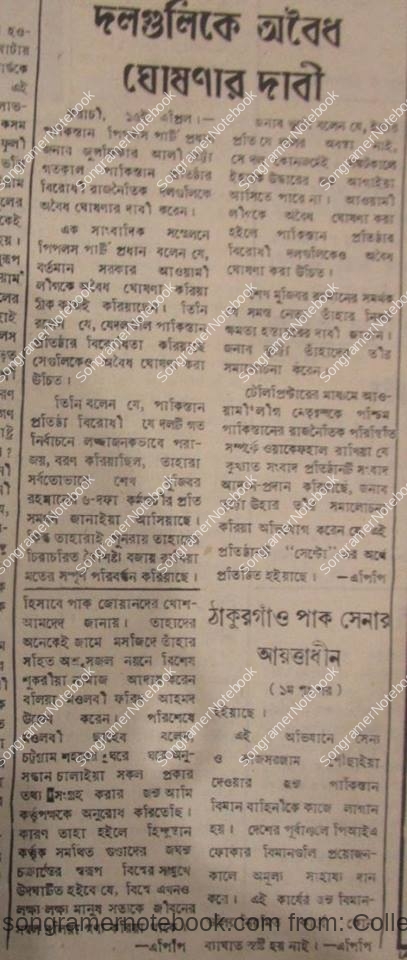 দলগুলিকে অবৈধ
ঘোষণার দাবী
করাচী, ১৫ই এপ্রিল।—
পাকিস্তান পিপলস পার্টি প্রধান
জনাব জুলফিকার আলী ভুট্টো
গতকাল পাকিস্তান প্রতিষ্ঠার
বিরোধী রাজনৈতিক দলগুলিকে
অবৈধ ঘোষণার দাবী করেন।
এক সাংবাদিক সম্মেলনে
পিপলস পার্টি প্রধান বলেন যে,
বর্তমান সরকার আওয়ামী
লীগকে অবৈধ ঘোষণা করিয়া
ঠিক কাজই করিয়াছেন। তিনি
বলেন যে, যেদলগুলি পাকিস্তান
প্রতিষ্ঠার বিরোধিতা করিয়াছে
সেগুলিকেও অবৈধ ঘোষণা করা
উচিত।
তিনি বলেন যে, পাকিস্তান
প্রতিষ্ঠা বিরোধী যে দলটি গত
নির্বাচনে লজ্জাজনকভাবে পরা-
জয়, বরণ করিয়াছিল, তাহারা
সর্বতোভাবে শেখ মুজিবর
রহমানের ৬-দফা কর্মসূচীর প্রতি
সমর্থন জানাইয়া আসিয়াছে।
কিন্তু তাহারাই পুনরায় তাহাদের
চিরাচরিত বৈশিষ্ট্য বজায় রাখিয়া
মতের সম্পূর্ণ পরিবর্তন করিয়াছে।
হিসাবে পাক জোয়ানদের খোশ-
আমদেদ জানায়। তাহাদের
অনেকেই জামে মসজিদে তাঁহার
সহিত অশ্রু সজল নয়নে বিশেষ
শুকরীয়া নামাজ আদায় করেন
বলিয়া মওলবী ফরিদ আহমদ
উল্লেখ করেন। পরিশেষে
মওলবী ছাহেব বলেন
চট্টগ্রাম শহরের ঘরে ঘরে অনু-
সন্ধান চালাইয়া সকল প্রকার
তথ্য সংগ্রহ করার জন্য আমি
কর্তৃপক্ষকে অনুরোধ করিতেছি।
কারণ তাহা হইলে হিন্দুস্থান
কর্তৃক সমর্থিত গুণ্ডাদের জঘন্য
চক্রান্তের স্বরূপ বিশ্বের সম্মুখে
উদঘাটিত হইবে যে, বিশ্বে এখনও
লক্ষ্য লক্ষ্য মানুষ সত্যকে জীবনের
—এপিপি
জনাব ভুট্টো বলেন যে,
প্রতি যে দেশের অবস্থা নাই,
সে দল কোনক্রমেই সংকটকালে
ইহার উদ্ধারের আগাইয়া
আসিতে পারে না। আওয়ামী
লীগকে অবৈধ ঘোষণা করা
হইলে পাকিস্তান প্রতিষ্ঠার
বিরোধী দলগুলিকেও অবৈধ
ঘোষণা করা উচিত।
শেখ মুজিবর রহমানের সমর্থক
যে সমস্ত নেতা তাঁহার নিকট
ক্ষমতা হস্তান্তরের দাবী জানান।
জনাব ভুট্টো তাঁহাদের তীব্র
সমালোচনা করেন।
টেলিপ্রিন্টারের মাধ্যমে আও-
য়ামী লীগ নেতৃবৃন্দকে পশ্চিম
পাকিস্তানের রাজনৈতিক পরিস্থিতি
সম্পর্কে ওয়াকেফহাল রাখিয়া যে
কুখ্যাত সংবাদ প্রতিষ্ঠানটি সংবাদ
আদান-প্রদান করিয়াছে, জনাব
ভুট্টো উহার তীব্র সমালোচনা
করিয়া অভিযোগ করেন যে এই
প্রতিষ্ঠানটি "সেন্টো"র অর্থে
প্রতিষ্ঠিত হইয়াছে। —এপিপি
ঠাকুরগাঁও পাক সেনার
আয়ত্তাধীন
(১ম পৃষ্ঠার)
হইয়াছে।
এই অভিযানে সৈন্য
ও সাজসরঞ্জাম পৌঁছাইয়া
দেওয়ার জন্য পাকিস্তান
বিমান বাহিনীকে কাজে লাগান
হয়। দেশের পূর্বাঞ্চলে পিআইএ
ফোকার বিমানগুলি প্রয়োজন-
কালে অমূল্য সাহায্য দান
করে। এই কার্যের জন্য বিমান-
ব্যাঘাত সৃষ্টি হয় নাই। —এপিপি
songramernotebook.com from: Colle